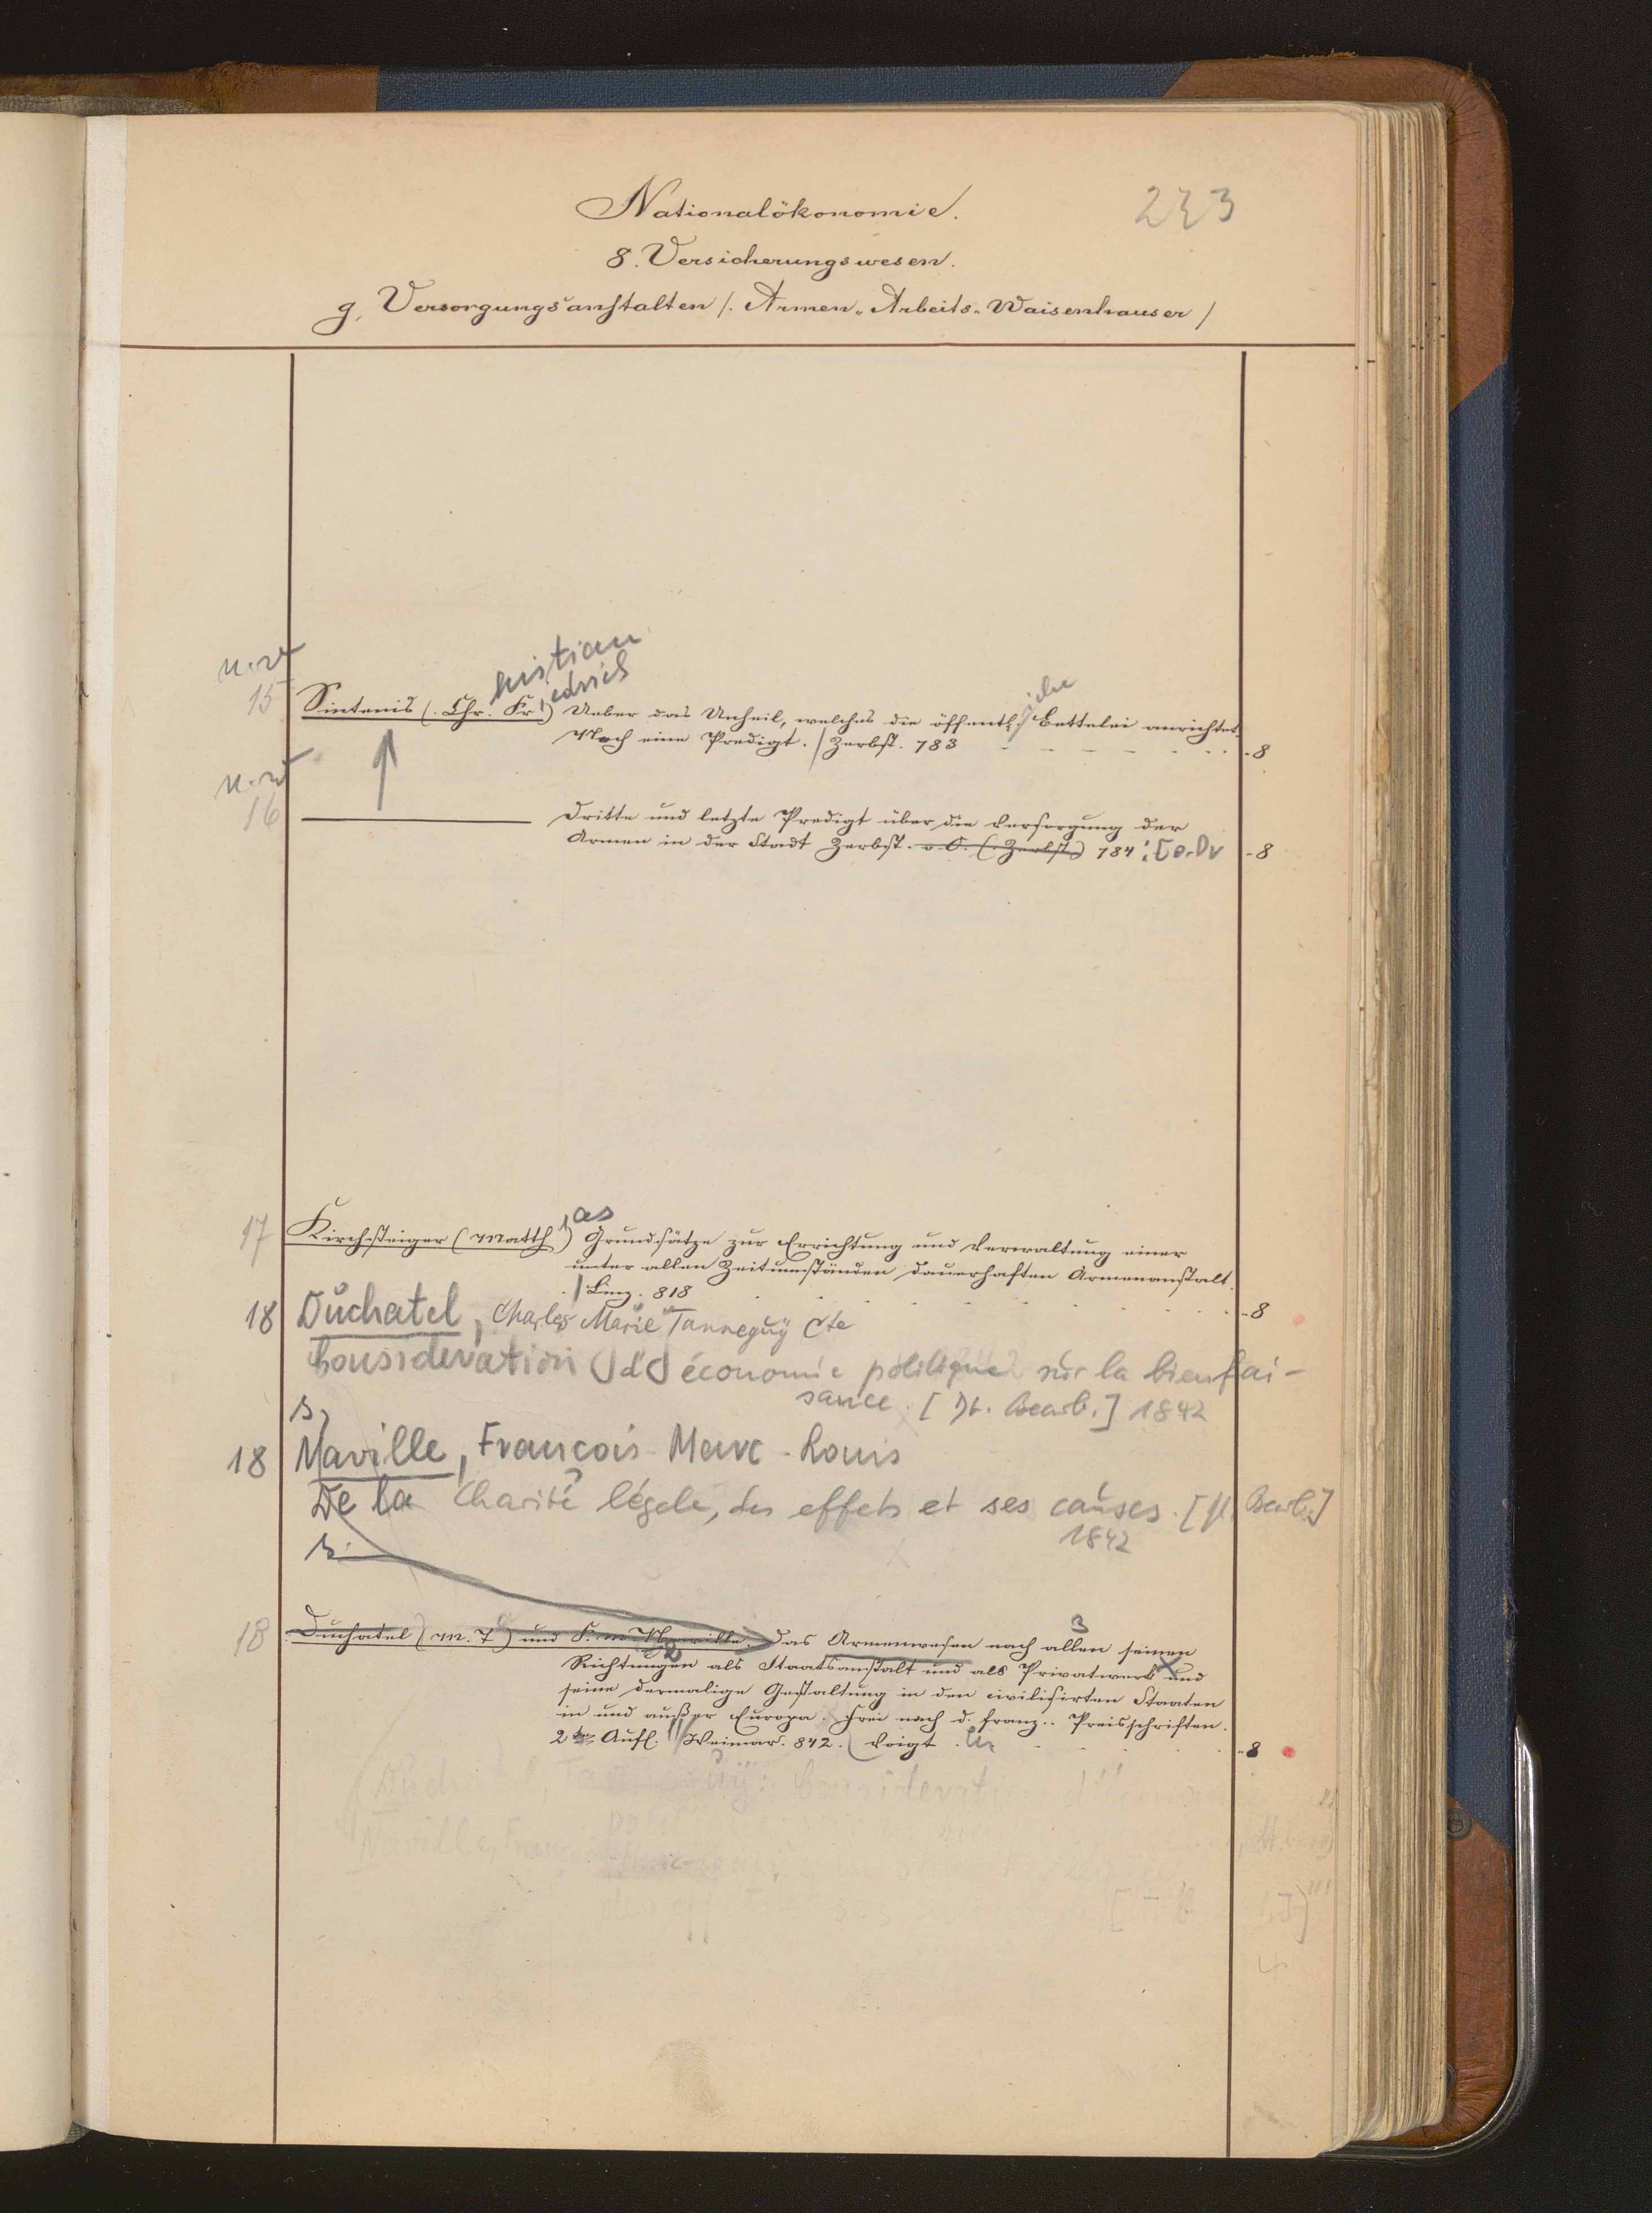 Nationalökonomie.
8. Versicherungswesen.
g, Versorgungsanstalten /. Armen„ Arbeits„ Waisenhauser /
15 Sintenis (. Chr. Fr.) Ueber das Unheil, welches die öffentl. Bettelei anrichtet.
hristian
iedrich
iche
Noch eine Predigt. / Zerbst. 783 - 8
16 Dritte und letzte Predigt über die Versorgung der
Armen in der Stadt Zerbst. o. O. (. Zerbst.) 784 - 8
as
17 Kirchsteiger (Matth.) Grundsätze zur Errichtung und Verwaltung einer
unter allen Zeitumständen dauerhaften Armenanstalt.
/ Linz. 818 - 8
18 Duchatel, Charles Marie Tanneguy Cte
Consideration d' économie politique sur la bienfai-
sance. [Dt. Bearb.] 1842
18 Naville, Francois-Marc-Louis
De la Charité légale, des effets et ses causes. [Dt. Bearb.]
1842
18 Duchatel (M. T.) und F. M. Naville. Das Armenwesen nach allen seinen
Richtungen als Staatsanstalt und als Privatwerk und
seine dermalige Gestaltung in den civilisirten Staaten
in und außer Europa. Frei nach d. franz.. Preisschriften.
2te Aufl. Weimar. 842. Voigt. - 8